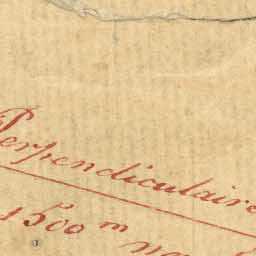 Perpendiculaire
1500 m